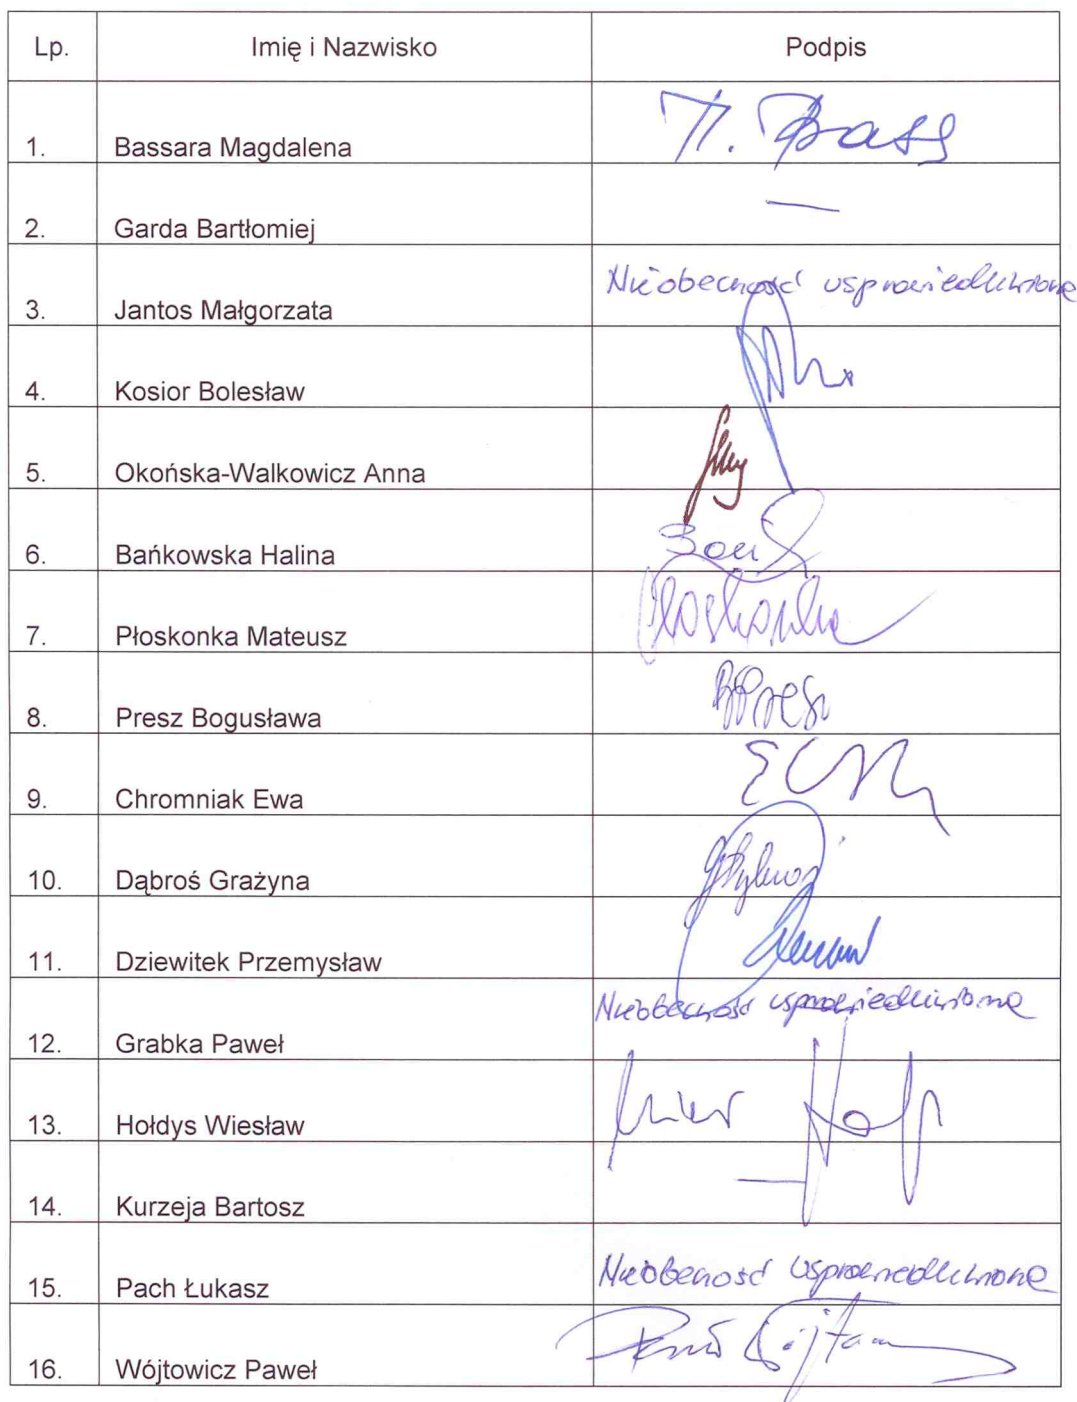 Lp. Imię i Nazwisko Podpis
1. Bassara Magdalena M. Bass
2. Garda Bartłomiej —
3. Jantos Małgorzata Nieobecność usprawiedliwiona
4. Kosior Bolesław
5. Okońska-Walkowicz Anna
6. Bańkowska Halina
7. Płoskonka Mateusz Płoskonka
8. Presz Bogusława BPresz
9. Chromniak Ewa ECh
10. Dąbroś Grażyna
11. Dziewitek Przemysław
12. Grabka Paweł Nieobecność usprawiedliwiona
13. Hołdys Wiesław
14. Kurzeja Bartosz —
15. Pach Łukasz Nieobecność usprawiedliwiona
16. Wójtowicz Paweł